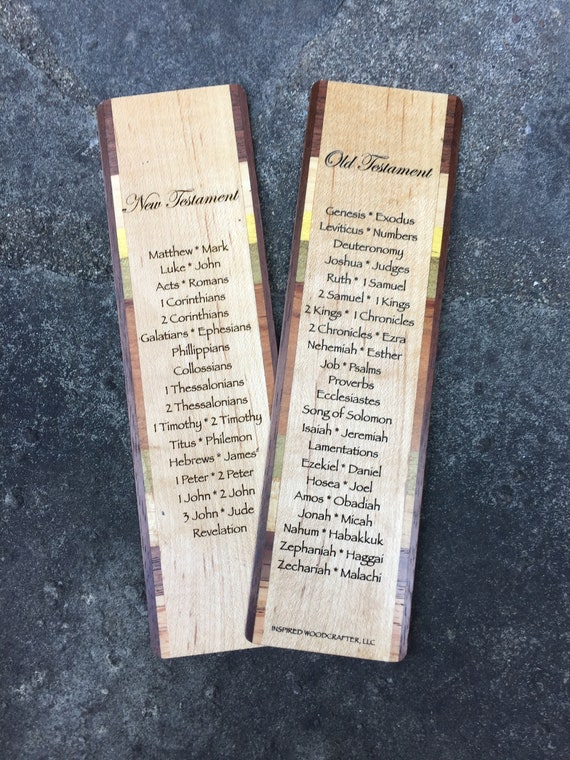 New Testament
Matthew * Mark
Luke * John
Acts * Romans
1 Corinthians
2 Corinthians
Galatians * Ephesians
Phillippians
Collossians
1 Thessalonians
2 Thessalonians
1 Timothy * 2 Timothy
Titus * Philemon
Hebrews * James
1 Peter * 2 Peter
1 John * 2 John
3 John * Jude
Revelation
Old Testament
Genesis * Exodus
Leviticus * Numbers
Deuteronomy
Joshua * Judges
Ruth * 1 Samuel
2 Samuel * 1 Kings
2 Kings * 1 Chronicles
2 Chronicles * Ezra
Nehemiah * Esther
Job * Psalms
Proverbs
Ecclesiastes
Song of Solomon
Isaiah * Jeremiah
Lamentations
Ezekiel * Daniel
Hosea * Joel
Amos * Obadiah
Jonah * Micah
Nahum * Habakkuk
Zephaniah * Haggai
Zechariah * Malachi
INSPIRED WOODCRAFTER, LLC